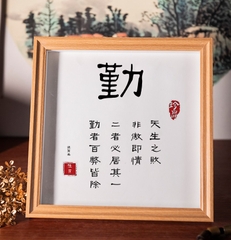 勤
天生之敗
非傲即惰
二者必居其一
勤者百弊皆除